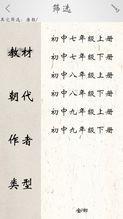 筛选
其它筛选：唐朝/
教材
朝代
作者
类型
初中七年级上册
初中七年级下册
初中八年级上册
初中八年级下册
初中九年级上册
初中九年级下册
全部